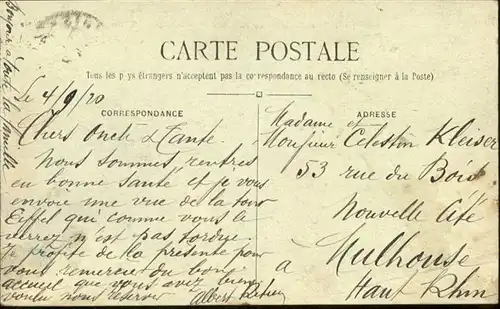 Bonjour à toute la famille
CARTE POSTALE
Tous les pays étrangers n'acceptent pas la correspondance au recto (Se renseigner à la Poste)
Le 4/9/20
CORRESPONDANCE
Chers Oncle & Tante.
Nous sommes rentrés
en bonne santé et je vous
envoie une vue de la tour
Eiffel qui comme vous le
verrez n'est pas tordue.
Je profite de la présente pour
vous remercier du bon
accueil que vous avez bien
voulu nous réserver
Albert
ADRESSE
Madame et
Monsieur Celestin Kleiser
53 rue du Bois
Nouvelle Cité
à Mulhouse
Haut Rhin